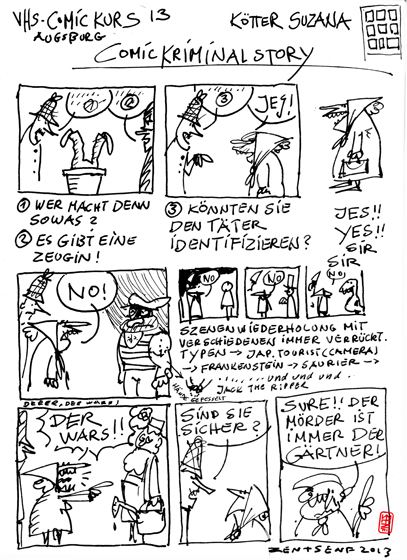 VHS-COMIC KURS 13
AUGSBURG
KÖTTER SUZANA
COMICKRIMINALSTORY
① ②
③ JES!
① WER MACHT DENN
SOWAS?
② ES GIBT EINE
ZEUGIN!
③ KÖNNTEN SIE
DEN TÄTER
IDENTIFIZIEREN?
JES!!
YES!!
SIR
SIR
NO!
NO
NO
NO
SZENENWIEDERHOLUNG MIT
VERSCHIEDENEN IMMER VERRÜCKT.
TYPEN → JAP. TOURIST (CAMERA)
→ FRANKENSTEIN → SAURIER →
und und und..
JACK THE RIPPER
HÄNDE GEFESSELT
DERER, DER WARS!
DER
WARS!!
SIND SIE
SICHER?
SURE!! DER
MÖRDER IST
IMMER DER
GÄRTNER!
ZENTSENF 2013